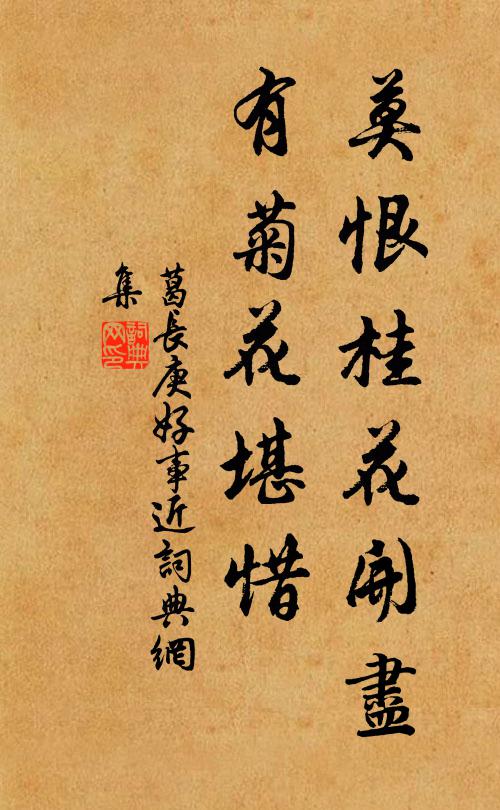 莫恨桂花開盡
有菊花堪惜
葛長庚好事近詞典網
集
詞典
网印